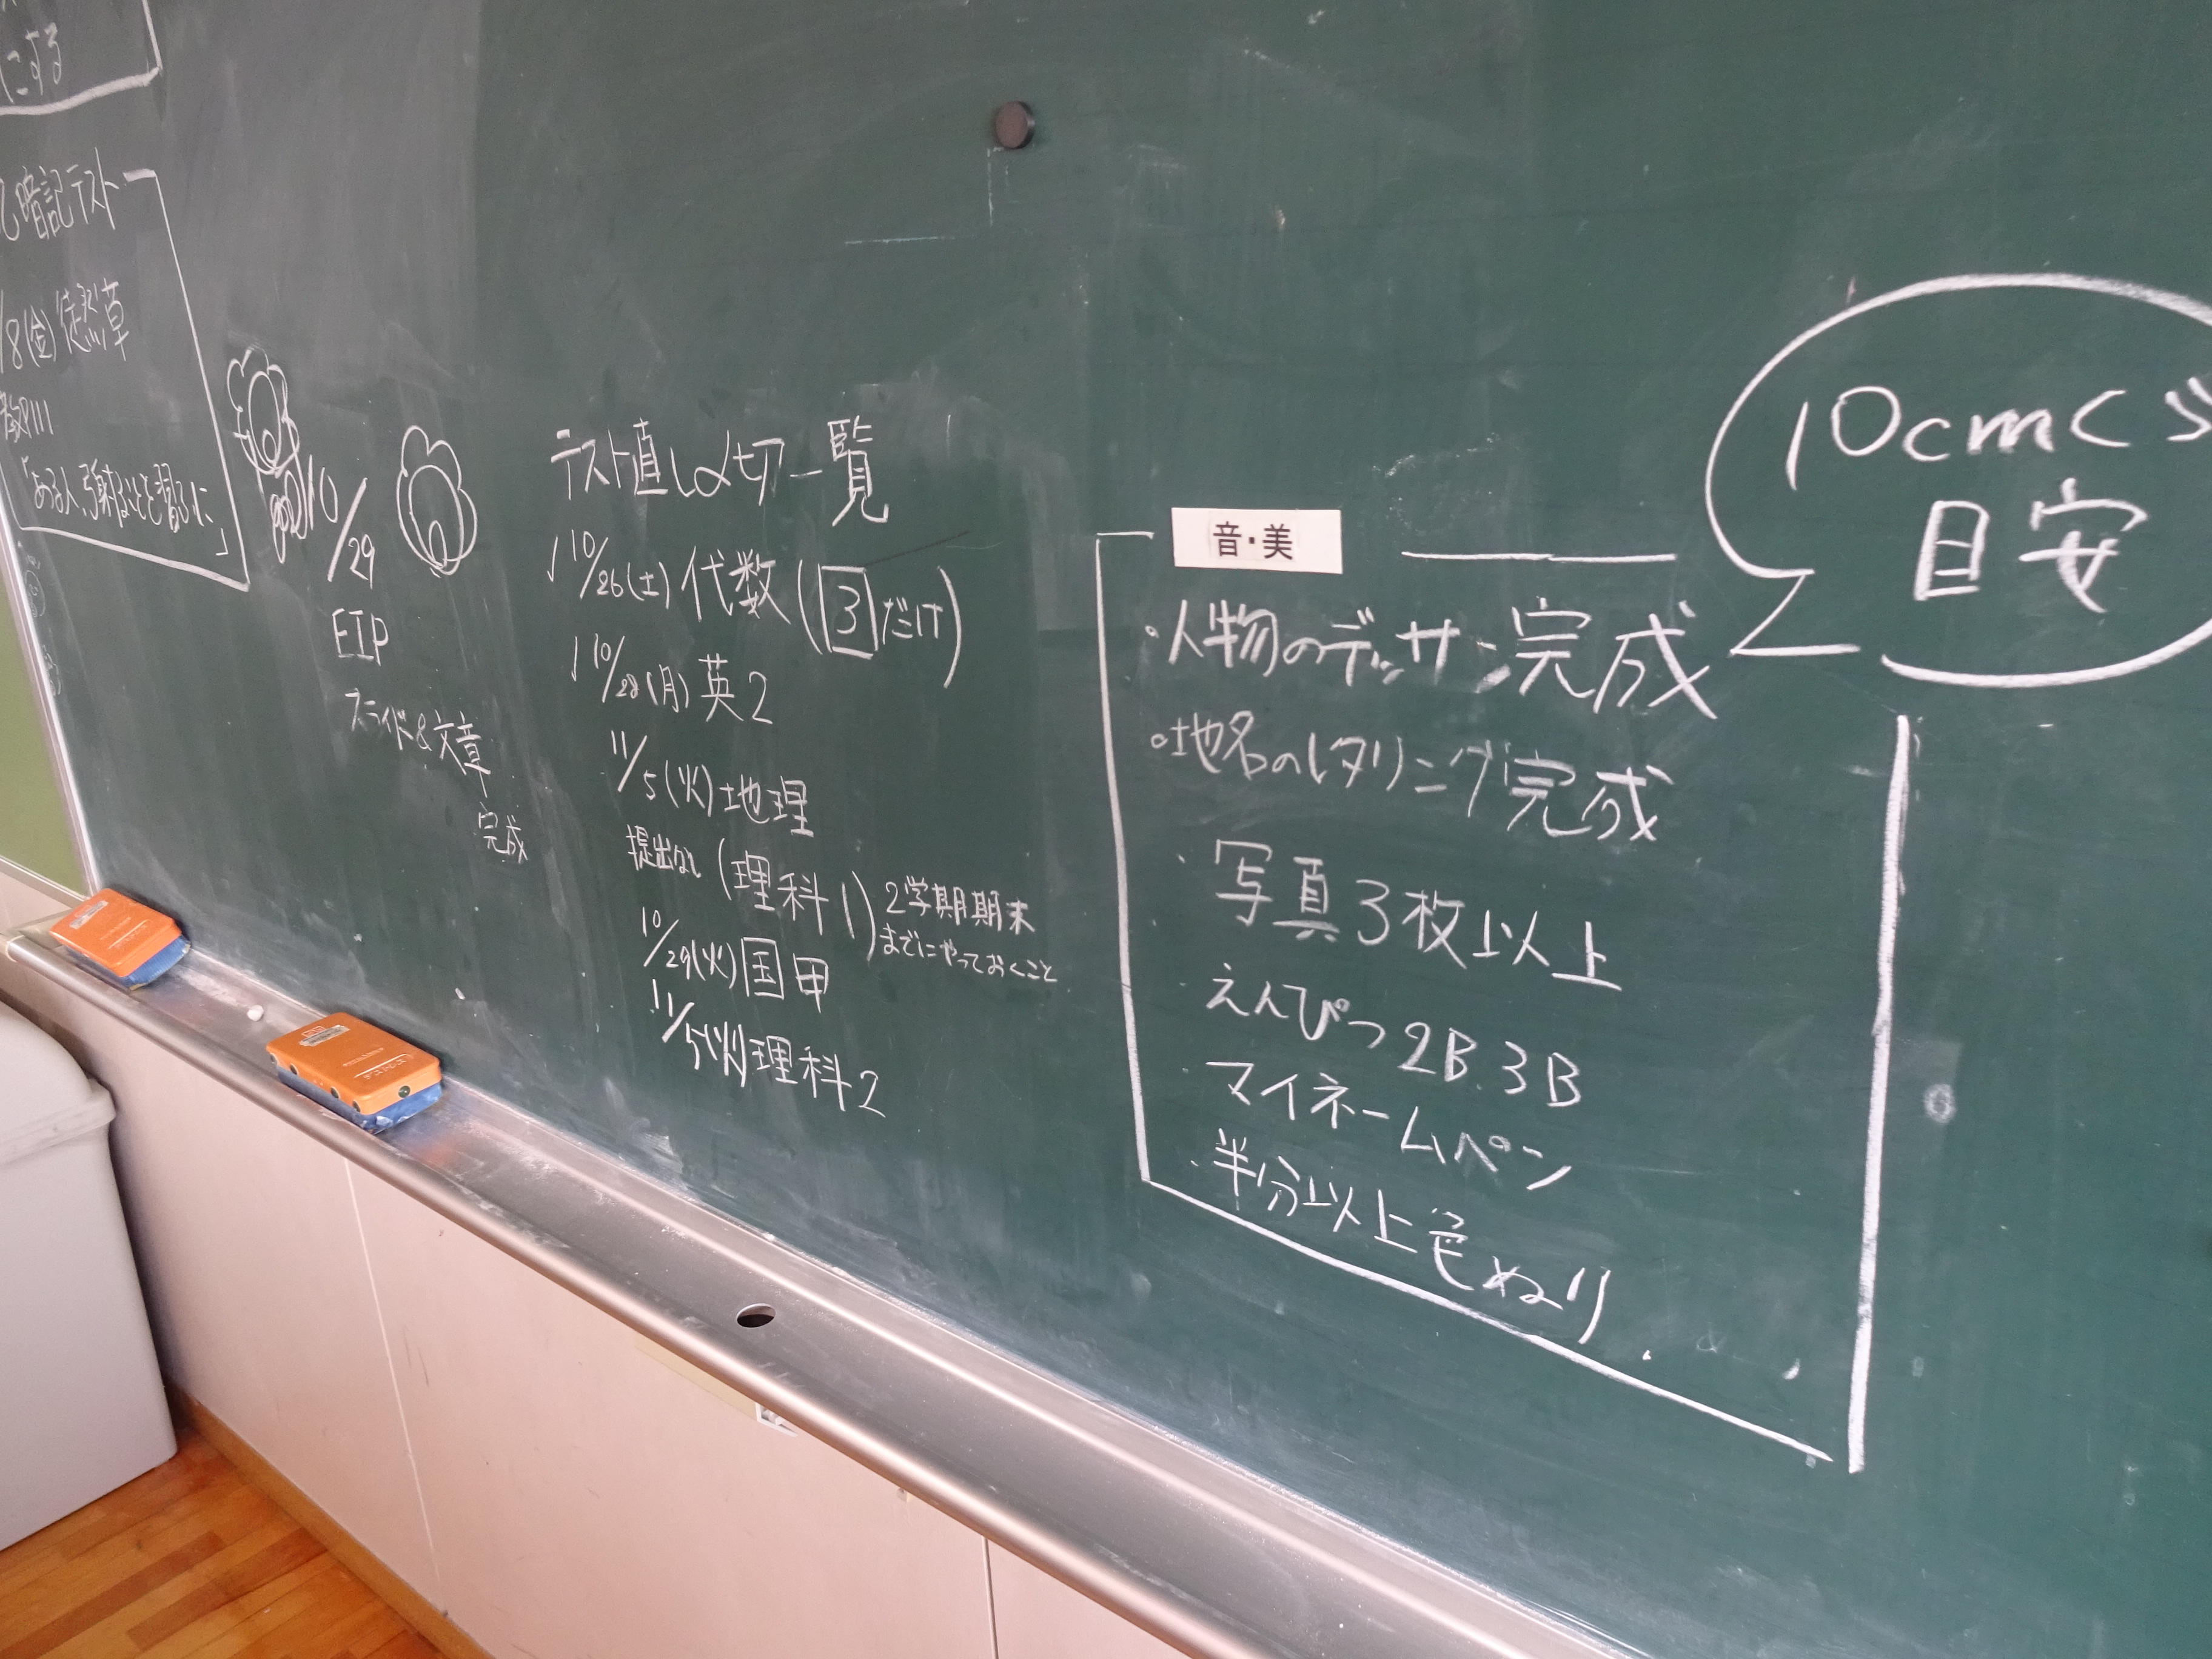 にする
暗記テスト
8(金)徒然草
教P111
「ある人、弓射ることを習ふに」
10/29
EIP
スライド&文章
完成
テスト直し〆切一覧
10/26(土)代数(3だけ)
10/28(月)英2
11/5(火)地理
提出なし(理科1)2学期期末
までにやっておくこと
10/29(火)国甲
11/5(火)理科2
音・美
・人物のデッサン完成
・地名のレタリング完成
・写真3枚以上
・えんぴつ2B.3B
・マイネームペン
・半分以上色ぬり
10cmぐ
目安